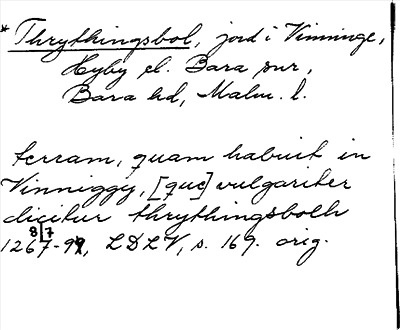 * Thrythingsbol, jord i Vinninge,
Hyby el. Bara snr,
Bara hd, Malm. l.
terram, quam habuit in
Vinniggy, [que] vulgariter
dicitur thrythingsbolh
8/7
1267-99, LDLV, s. 169. orig.